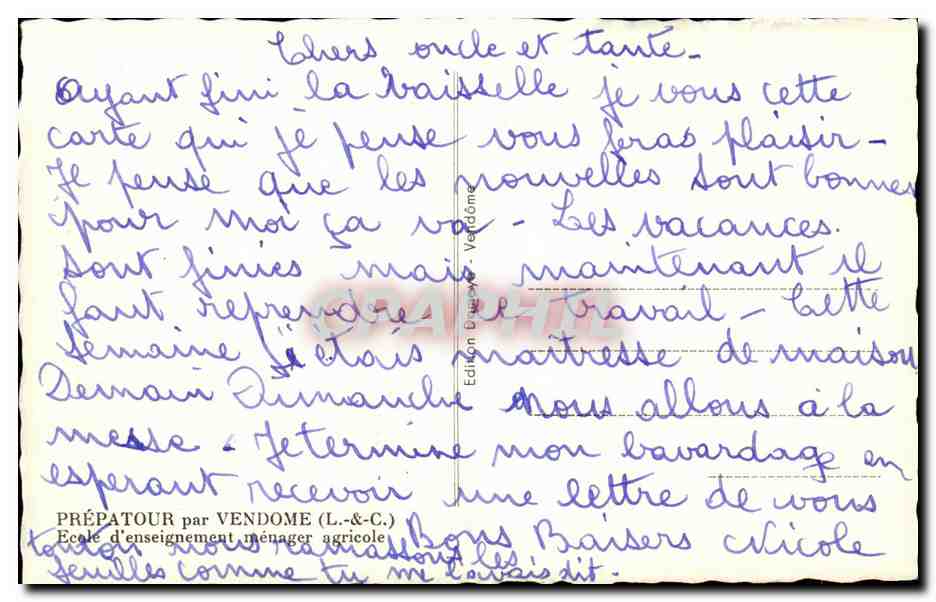 Chers oncle et tante -
Ayant fini la vaisselle je vous cette
carte qui je pense vous feras plaisir -
Je pense que les nouvelles sont bonnes
pour moi ça va - Les vacances.
sont finies mais maintenant il
faut reprendre le travail - Cette
semaine j'étais maîtresse de maison
Demain Dimanche nous allons à la
messe - Je termine mon bavardage en
esperant recevoir une lettre de vous
Bons Baisers Nicole
tonton nous ramassons les
feuilles comme tu me l'avais dit.
PRÉPATOUR par VENDOME (L.-&-C.)
Ecole d'enseignement ménager agricole
Edition - Vendôme
CPAPHIL